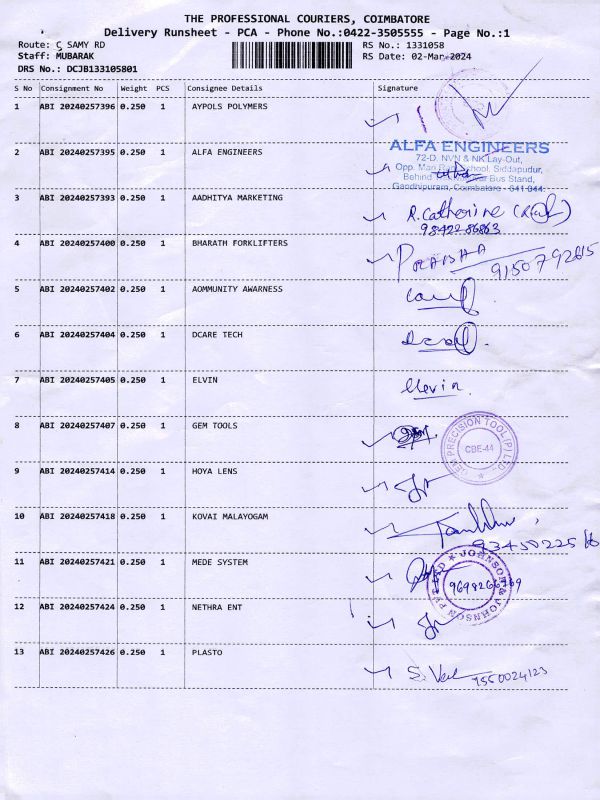 THE PROFESSIONAL COURIERS, COIMBATORE
Delivery Runsheet - PCA - Phone No.:0422-3505555 - Page No.:1
Route: C SAMY RD
RS No.: 1331058
Staff: MUBARAK
RS Date: 02-Mar-2024
DRS No.: DCJB133105801
S No Consignment No Weight PCS Consignee Details Signature
1 ABI 20240257396 0.250 1 AYPOLS POLYMERS
2 ABI 20240257395 0.250 1 ALFA ENGINEERS
ALFA ENGINEERS
72-D, NVN & NK Lay-Out,
Opp. Mani School, Siddapudur,
Behind Bus Stand,
Gandhipuram, Coimbatore - 641 044.
3 ABI 20240257393 0.250 1 AADHITYA MARKETING
R. Catherine
9842286863
4 ABI 20240257400 0.250 1 BHARATH FORKLIFTERS
9150792615
5 ABI 20240257402 0.250 1 AOMMUNITY AWARNESS
6 ABI 20240257404 0.250 1 DCARE TECH
7 ABI 20240257405 0.250 1 ELVIN
8 ABI 20240257407 0.250 1 GEM TOOLS
PRECISION TOOL (P) LTD.
CBE-44
9 ABI 20240257414 0.250 1 HOYA LENS
10 ABI 20240257418 0.250 1 KOVAI MALAYOGAM
11 ABI 20240257421 0.250 1 MEDE SYSTEM
JOHNSON & JOHNSON PVT
12 ABI 20240257424 0.250 1 NETHRA ENT
13 ABI 20240257426 0.250 1 PLASTO
9550024123